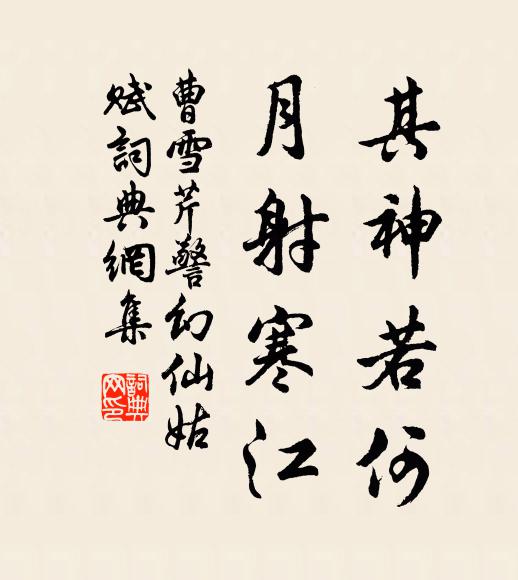 其神若何
月射寒江
曹雪芹警幻仙姑
赋詞典網集
詞典
网印